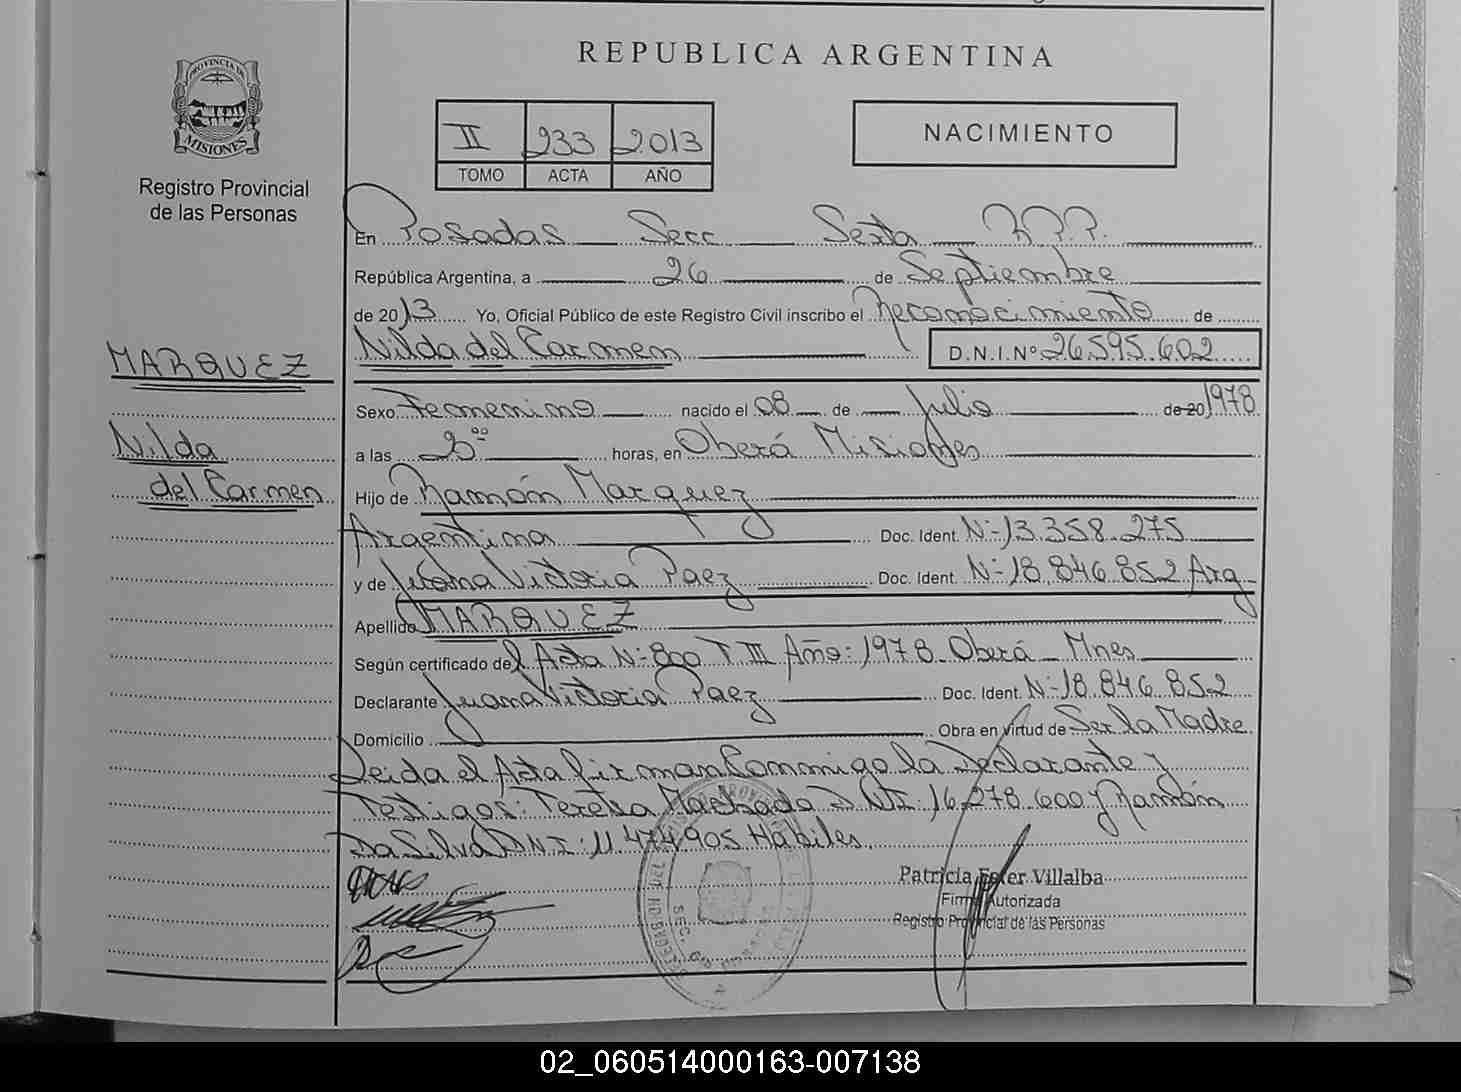 REPUBLICA ARGENTINA
PROVINCIA DE
MISIONES
Registro Provincial
de las Personas
II 233 2013
TOMO ACTA AÑO
NACIMIENTO
En Posadas Secc Sexta R.P.P.
República Argentina, a 26 de Septiembre
de 2013 Yo, Oficial Público de este Registro Civil inscribo el Reconocimiento de
Nilda del Carmen D.N.I.Nº 26.595.602
MARQUEZ
Nilda
del Carmen
Sexo Femenino nacido el 08 de Julio de 20 1978
a las horas, en Oberá Misiones
Hijo de Ramón Marquez
Argentina Doc. Ident. Nº 13.358.275
y de Juana Victoria Paez Doc. Ident. Nº 18.846.852 Arg
Apellido MARQUEZ
Según certificado del Acta Nº 800 T III Año: 1978 Oberá Mnes
Declarante Juana Victoria Paez Doc. Ident. Nº 18.846.852
Domicilio Obra en virtud de Ser la Madre
Leida el Acta firman Conmigo la Declarante y
Testigos: Teresa Machado DNI: 16.278.600 y Ramón
Da Silva DNI: 11.474.905 Hábiles.
Patricia Ester Villalba
Firma Autorizada
Registro Provincial de las Personas
02_060514000163-007138